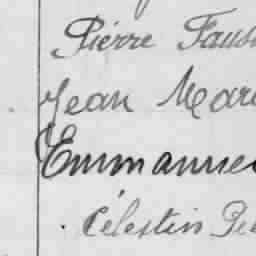 Pierre Faus
Jean Mar
Emmanue
Célestin Pe